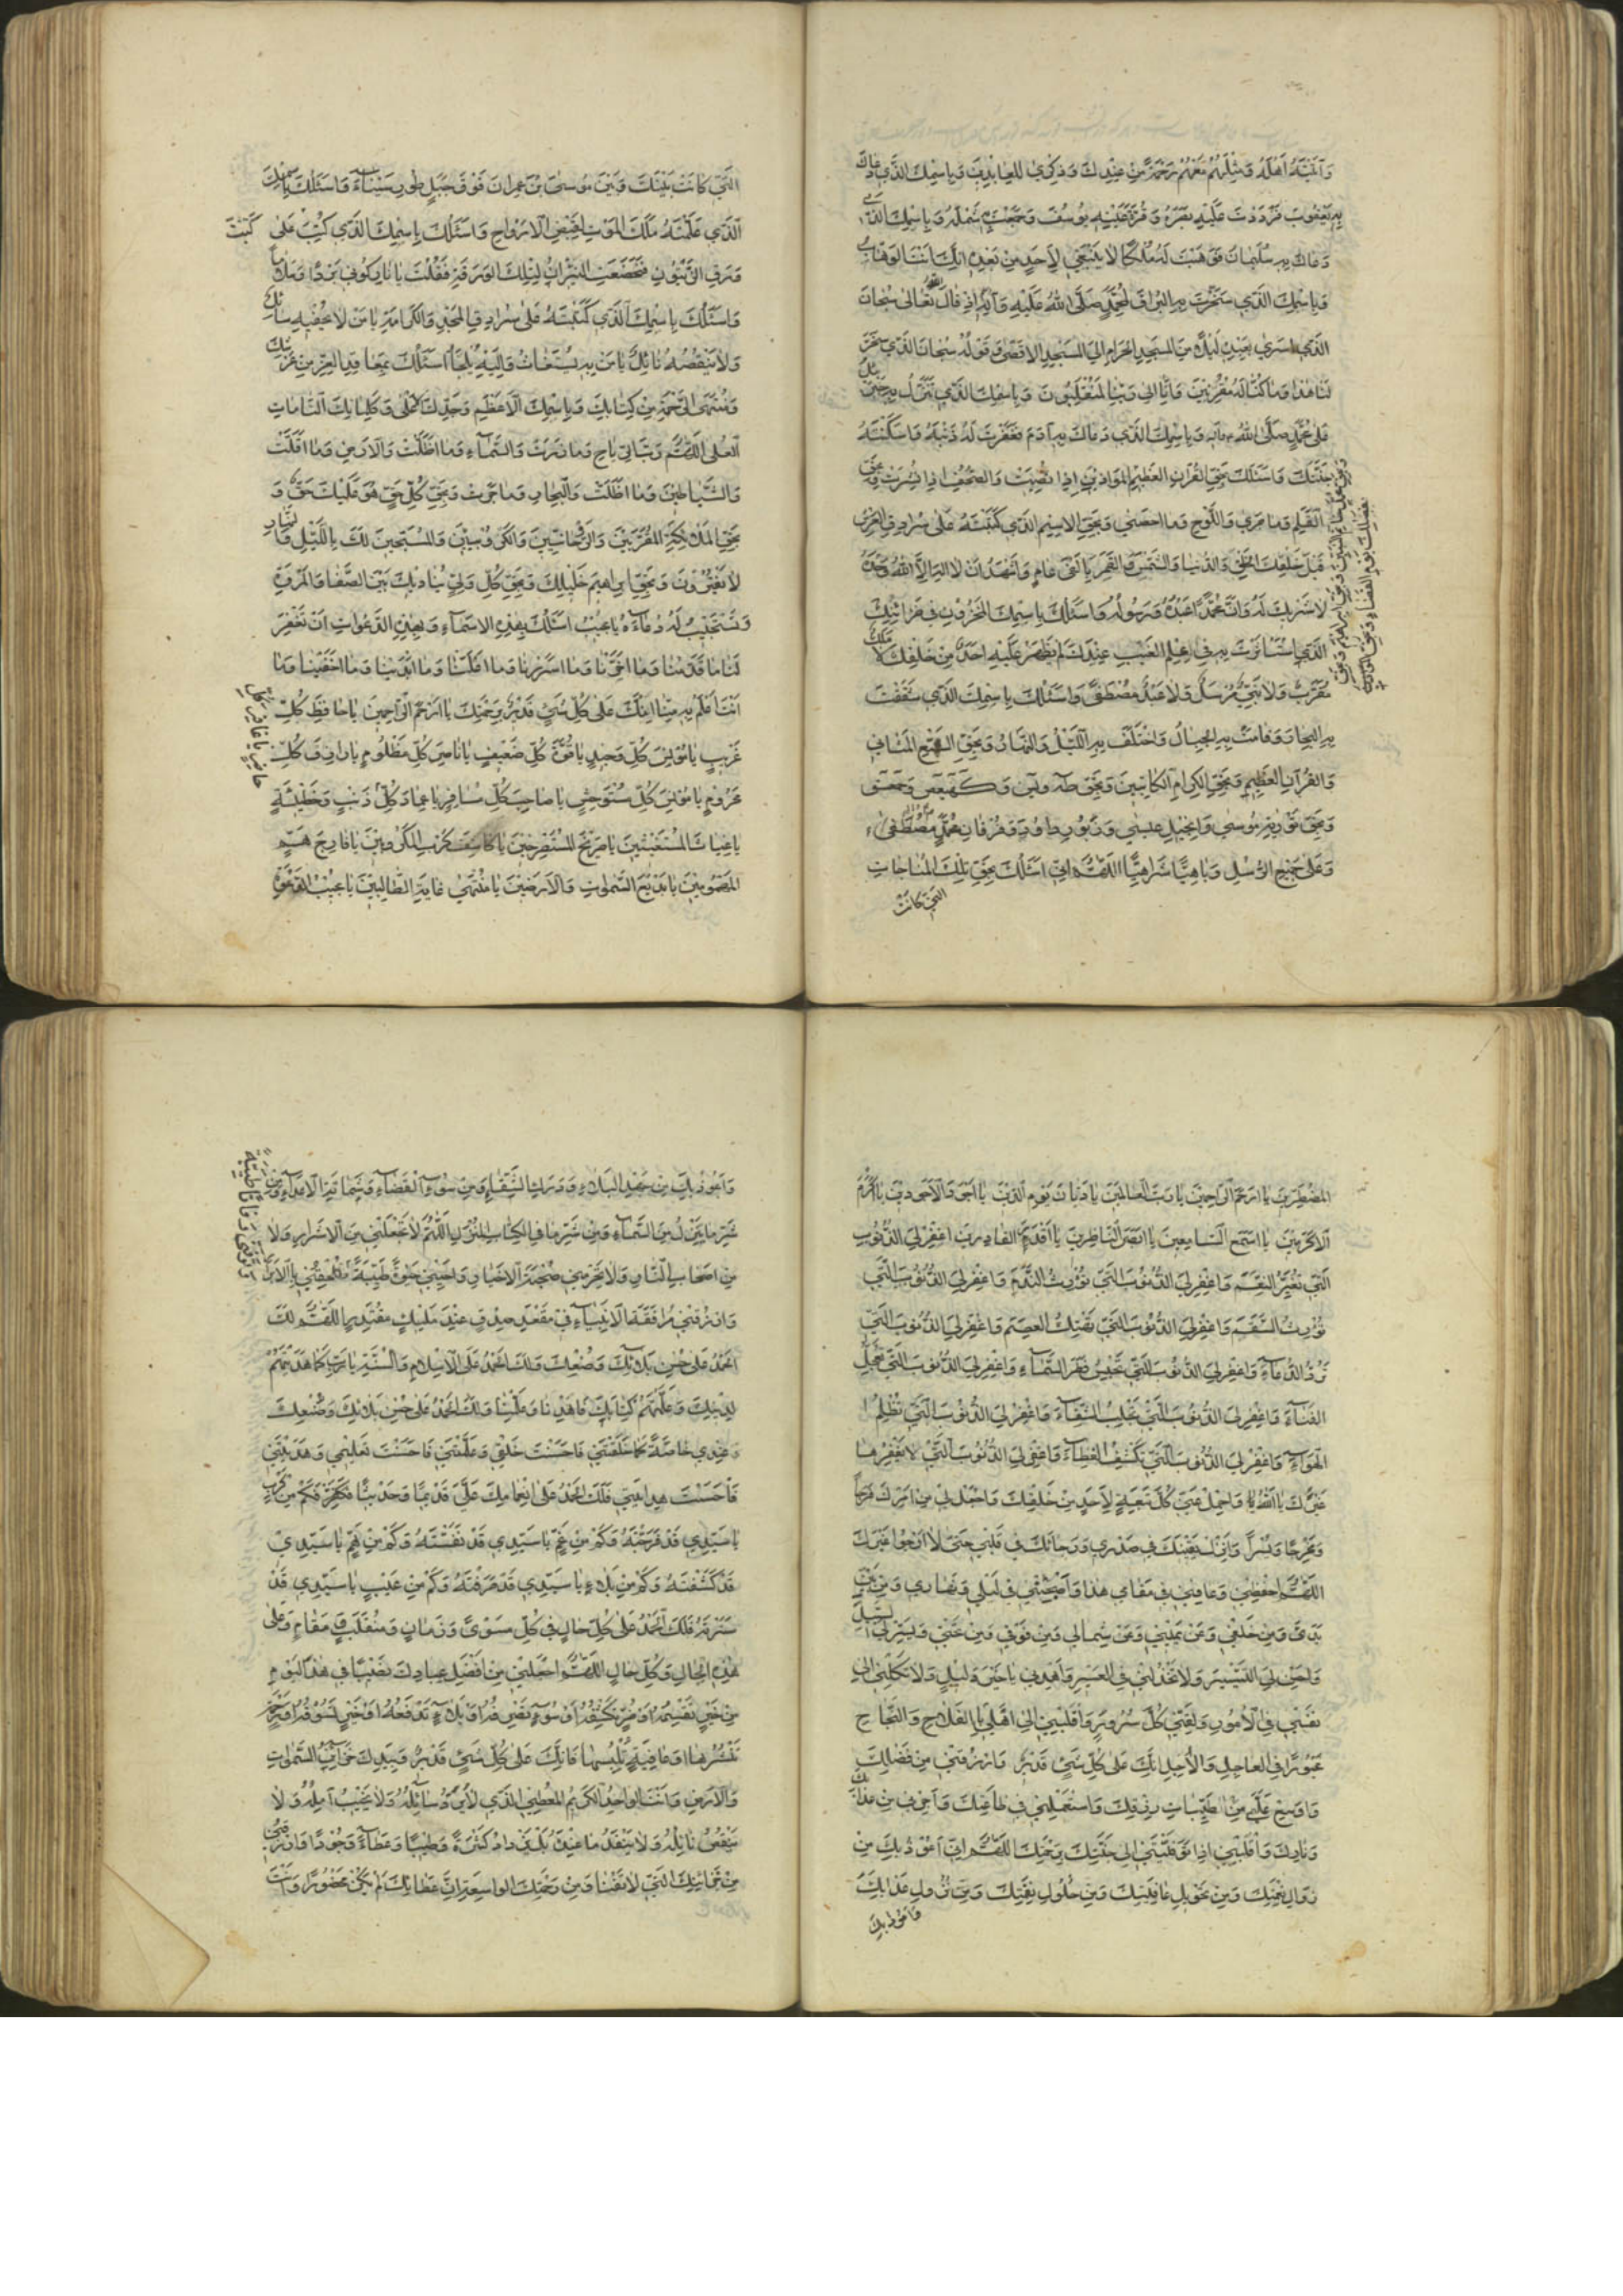 وَآتَيْتَهُ اَهْلَهُ وَمِثْلَهُمْ مَعَهُمْ رَحْمَةً مِنْ عِنْدِكَ وَذِكْرىٰ لِلْعابِدينَ وَبِاسْمِكَ الَّذي دَعاكَ
بِهِ يَعْقُوبُ فَرَدَدْتَ عَلَيْهِ بَصَرَهُ وَقُرَّةَ عَيْنِهِ يُوسُفَ وَجَمَعْتَ شَمْلَهُ وَبِاسْمِكَ الَّذي
دَعاكَ بِهِ سُلَيْمانُ فَوَهَبْتَ لَهُ مُلْكًا لا يَنْبَغي لِاَحَدٍ مِنْ بَعْدِهِ اِنَّكَ اَنْتَ الوَهّابُ
وَبِاسْمِكَ الَّذي سَخَّرْتَ بِهِ البُراقَ لِمُحَمَّدٍ صَلَّى اللهُ عَلَيْهِ وَآلِهِ اِذْ قالَ تَعالىٰ سُبْحانَ
الَّذي اَسْرىٰ بِعَبْدِهِ لَيْلًا مِنَ المَسْجِدِ الحَرامِ اِلَى المَسْجِدِ الاَقْصىٰ وَقَوْلُهُ سُبْحانَ الَّذي سَخَّرَ
لَنا هٰذا وَما كُنّا لَهُ مُقْرِنينَ وَاِنّا اِلىٰ رَبِّنا لَمُنْقَلِبُونَ وَبِاسْمِكَ الَّذي تَنَزَّلَ بِهِ جَبْرَئيلُ
عَلىٰ مُحَمَّدٍ صَلَّى اللهُ وآله وَبِاسْمِكَ الَّذي دَعاكَ بِهِ آدَمُ فَغَفَرْتَ لَهُ ذَنْبَهُ وَاَسْكَنْتَهُ
جَنَّتَكَ وَاَسْئَلُكَ بِحَقِّ القُرْآنِ العَظيمِ المَوازينِ اِذا نُصِبَتْ وَالصُّحُفِ اِذا نُشِرَتْ وَبِحَقِّ
القَلَمِ وَما جَرىٰ وَاللَّوْحِ وَما اَحْصىٰ وَبِحَقِّ الاِسْمِ الَّذي كَتَبْتَهُ عَلىٰ سُرادِقِ العَرْشِ
قَبْلَ خَلْقِكَ الخَلْقَ وَالدُّنْيا وَالشَّمْسَ وَالقَمَرَ بِاَلْفَيْ عامٍ وَاَشْهَدُ اَنْ لا اِلٰهَ اِلَّا اللهُ وَحْدَهُ
لا شَريكَ لَهُ وَاَنَّ مُحَمَّدًا عَبْدُهُ وَرَسُولُهُ وَاَسْئَلُكَ بِاسْمِكَ المَخْزُونِ في خَزائِنِكَ
الَّذي اسْتَأْثَرْتَ بِهِ في عِلْمِ الغَيْبِ عِنْدَكَ لَمْ يَظْهَرْ عَلَيْهِ اَحَدٌ مِنْ خَلْقِكَ لا مَلَكٌ
مُقَرَّبٌ وَلا نَبِيٌّ مُرْسَلٌ وَلا عَبْدٌ مُصْطَفىً وَاَسْئَلُكَ بِاسْمِكَ الَّذي شَقَقْتَ
بِهِ البِحارَ وَقامَتْ بِهِ الجِبالُ وَاخْتَلَفَ بِهِ اللَّيْلُ وَالنَّهارُ وَبِحَقِّ السَّبْعِ المَثاني
وَالقُرْآنِ العَظيمِ وَبِحَقِّ الكِرامِ الكاتِبينَ وَبِحَقِّ طه وَيس وَكهيعص وَحمعسق
وَبِحَقِّ تَوْرٰيةِ مُوسىٰ وَاِنْجيلِ عيسىٰ وَزَبُورِ داوُدَ وَفُرْقانِ مُحَمَّدٍ مُصْطَفىٰ
وَعَلىٰ جَميعِ الرُّسُلِ وَباهِيًّا شَراهِيًّا اَللّٰهُمَّ اِنّي اَسْئَلُكَ بِحَقِّ تِلْكَ المُناجاتِ
الَّتي كانَتْ
الَّتي كانَتْ بَيْنَكَ وَبَيْنَ مُوسَى بْنِ عِمْرانَ فَوْقَ جَبَلِ طُورِ سَيْناءَ وَاَسْئَلُكَ بِاسْمِكَ
الَّذي عَلَّمْتَهُ مَلَكَ المَوْتِ لِقَبْضِ الاَرْواحِ وَاَسْئَلُكَ بِاسْمِكَ الَّذي كُتِبَ عَلىٰ كَتَبْتَ
وَرَقِ الزَّيْتُونِ فَخَضَعَتِ النّيرانُ لِتِلْكَ الوَرَقَةِ فَقُلْتَ يا نارُ كُوني بَرْدًا وَسَلامًا
وَاَسْئَلُكَ بِاسْمِكَ الَّذي كَتَبْتَهُ عَلىٰ سُرادِقِ المَجْدِ وَالكَرامَةِ يا مَنْ لا يُحْفيهِ سائِلٌ
وَلا يَنْقُصُهُ نائِلٌ يا مَنْ بِهِ يُسْتَغاثُ وَاِلَيْهِ يُلْجَأُ اَسْئَلُكَ بِمَعاقِدِ العِزِّ مِنْ عَرْشِكَ
وَمُنْتَهَى الرَّحْمَةِ مِنْ كِتابِكَ وَبِاسْمِكَ الاَعْظَمِ وَجَدِّكَ الاَعْلىٰ وَكَلِماتِكَ التّامّاتِ
العُلىٰ اَللّٰهُمَّ رَبَّ الرِّياحِ وَما ذَرَتْ وَالسَّماءِ وَما اَظَلَّتْ وَالاَرْضِ وَما اَقَلَّتْ
وَالشَّياطينِ وَما اَضَلَّتْ وَالبِحارِ وَما جَرَتْ وَبِحَقِّ كُلِّ حَقٍّ هُوَ عَلَيْكَ حَقٌّ وَ
بِحَقِّ المَلائِكَةِ المُقَرَّبينَ وَالرَّوْحانِيّينَ وَالكَرُوبِيّينَ وَالمُسَبِّحينَ لَكَ بِاللَّيْلِ وَالنَّهارِ
لا يَفْتُرُونَ وَبِحَقِّ اِبْراهيمَ خَليلِكَ وَبِحَقِّ كُلِّ وَلِيٍّ يُناديكَ بَيْنَ الصَّفا وَالمَرْوَةِ
وَتَسْتَجيبُ لَهُ دُعاءَهُ يا مُجيبُ اَسْئَلُكَ بِهٰذِهِ الاَسْماءِ وَبِهٰذِهِ الدَّعَواتِ اَنْ تَغْفِرَ
لَنا ما قَدَّمْنا وَما اَخَّرْنا وَما اَسْرَرْنا وَما اَعْلَنّا وَما اَبْدَيْنا وَما اَخْفَيْنا وَما
اَنْتَ اَعْلَمُ بِهِ مِنّا اِنَّكَ عَلىٰ كُلِّ شَيْءٍ قَديرٌ بِرَحْمَتِكَ يا اَرْحَمَ الرّاحِمينَ يا حافِظَ كُلِّ
غَريبٍ يا مُونِسَ كُلِّ وَحيدٍ يا قُوَّةَ كُلِّ ضَعيفٍ يا ناصِرَ كُلِّ مَظْلُومٍ يا رازِقَ كُلِّ
مَحْرُومٍ يا مُونِسَ كُلِّ مُسْتَوْحِشٍ يا صاحِبَ كُلِّ مُسافِرٍ يا عِمادَ كُلِّ ذَنْبٍ وَخَطيئَةٍ
يا غِياثَ المُسْتَغيثينَ يا صَريخَ المُسْتَصْرِخينَ يا كاشِفَ كَرْبِ المَكْرُوبينَ يا فارِجَ هَمِّ
المَهْمُومينَ يا بَديعَ السَّمٰواتِ وَالاَرَضينَ يا مُنْتَهىٰ غايَةِ الطّالِبينَ يا مُجيبَ دَعْوَةِ
المُضْطَرّينَ يا اَرْحَمَ الرّاحِمينَ يا رَبَّ العالَمينَ يا دَيّانَ يَوْمِ الدّينِ يا اَجْوَدَ الاَجْوَدينَ يا اَكْرَمَ
الاَكْرَمينَ يا اَسْمَعَ السّامِعينَ يا اَبْصَرَ النّاظِرينَ يا اَقْدَرَ القادِرينَ اغْفِرْ لِيَ الذُّنُوبَ
الَّتي تُغَيِّرُ النِّعَمَ وَاغْفِرْ لِيَ الذُّنُوبَ الَّتي تُورِثُ النَّدَمَ وَاغْفِرْ لِيَ الذُّنُوبَ الَّتي
تُورِثُ السَّقَمَ وَاغْفِرْ لِيَ الذُّنُوبَ الَّتي تَهْتِكُ العِصَمَ وَاغْفِرْ لِيَ الذُّنُوبَ الَّتي
تَرُدُّ الدُّعاءَ وَاغْفِرْ لِيَ الذُّنُوبَ الَّتي تَحْبِسُ قَطْرَ السَّماءِ وَاغْفِرْ لِيَ الذُّنُوبَ الَّتي تُعَجِّلُ
الفَناءَ وَاغْفِرْ لِيَ الذُّنُوبَ الَّتي تَجْلِبُ الشَّقاءَ وَاغْفِرْ لِيَ الذُّنُوبَ الَّتي تُظْلِمُ
الهَواءَ وَاغْفِرْ لِيَ الذُّنُوبَ الَّتي تَكْشِفُ الغِطاءَ وَاغْفِرْ لِيَ الذُّنُوبَ الَّتي لا يَغْفِرُها
غَيْرُكَ يا اللهُ وَاحْمِلْ عَنّي كُلَّ تَبِعَةٍ لِاَحَدٍ مِنْ خَلْقِكَ وَاجْعَلْ لي مِنْ اَمْري فَرَجًا
وَمَخْرَجًا وَيُسْرًا وَاَنْزِلْ يَقينَكَ في صَدْري وَرَجاءَكَ في قَلْبي حَتّىٰ لا اَرْجُوَ غَيْرَكَ
اَللّٰهُمَّ احْفَظْني وَعافِني في مَقامي هٰذا وَاصْحَبْني في لَيْلي وَنَهاري وَمِنْ بَيْنِ
يَدَيَّ وَمِنْ خَلْفي وَعَنْ يَميني وَعَنْ شِمالي وَمِنْ فَوْقي وَمِنْ تَحْتي وَيَسِّرْ لِيَ السَّبيلَ
وَاَحْسِنْ لِيَ التَّيْسيرَ وَلا تَخْذُلْني فِي العَسيرِ وَاهْدِني يا خَيْرَ دَليلٍ وَلا تَكِلْني اِلىٰ
نَفْسي فِي الاُمُورِ وَلَقِّني كُلَّ سُرُورٍ وَاقْلِبْني اِلىٰ اَهْلي بِالفَلاحِ وَالنَّجاحِ
مَحْبُورًا فِي العاجِلِ وَالآجِلِ اِنَّكَ عَلىٰ كُلِّ شَيْءٍ قَديرٌ وَارْزُقْني مِنْ فَضْلِكَ
وَاَوْسِعْ عَلَيَّ مِنْ طَيِّباتِ رِزْقِكَ وَاسْتَعْمِلْني في طاعَتِكَ وَاَجِرْني مِنْ عَذابِكَ
وَنارِكَ وَاقْلِبْني اِذا تَوَفَّيْتَني اِلىٰ جَنَّتِكَ بِرَحْمَتِكَ اَللّٰهُمَّ اِنّي اَعُوذُ بِكَ مِنْ
زَوالِ نِعْمَتِكَ وَمِنْ تَحْويلِ عافِيَتِكَ وَمِنْ حُلُولِ نِقْمَتِكَ وَمِنْ نُزُولِ عَذابِكَ
وَاَعُوذُ بِكَ
وَاَعُوذُ بِكَ مِنْ جَهْدِ البَلاءِ وَدَرَكِ الشَّقاءِ وَمِنْ سُوءِ القَضاءِ وَشَماتَةِ الاَعْداءِ وَمِنْ
شَرِّ ما يَنْزِلُ مِنَ السَّماءِ وَمِنْ شَرِّ ما فِي الكِتابِ المُنْزَلِ اَللّٰهُمَّ لا تَجْعَلْني مِنَ الاَشْرارِ وَلا
مِنْ اَصْحابِ النّارِ وَلا تَحْرِمْني صُحْبَةَ الاَخْيارِ وَاَحْيِني حَيٰوةً طَيِّبَةً
وَارْزُقْني مُرافَقَةَ الاَنْبِياءِ في مَقْعَدِ صِدْقٍ عِنْدَ مَليكٍ مُقْتَدِرٍ اَللّٰهُمَّ لَكَ
الحَمْدُ عَلىٰ حُسْنِ بَلائِكَ وَصُنْعِكَ وَلَكَ الحَمْدُ عَلَى الاِسْلامِ وَالسُّنَّةِ يا رَبِّ كَما هَدَيْتَهُمْ
لِدينِكَ وَعَلَّمْتَهُمْ كِتابَكَ فَاهْدِنا وَعَلِّمْنا وَلَكَ الحَمْدُ عَلىٰ حُسْنِ بَلائِكَ وَصُنْعِكَ
عِنْدي خاصَّةً كَما خَلَقْتَني فَاَحْسَنْتَ خَلْقي وَعَلَّمْتَني فَاَحْسَنْتَ تَعْليمي وَهَدَيْتَني
فَاَحْسَنْتَ هِدايَتي فَلَكَ الحَمْدُ عَلىٰ اِنْعامِكَ عَلَيَّ قَديمًا وَحَديثًا فَكَمْ مِنْ كَرْبٍ
يا سَيِّدي قَدْ فَرَّجْتَهُ وَكَمْ مِنْ غَمٍّ يا سَيِّدي قَدْ نَفَّسْتَهُ وَكَمْ مِنْ هَمٍّ يا سَيِّدي
قَدْ كَشَفْتَهُ وَكَمْ مِنْ بَلاءٍ يا سَيِّدي قَدْ صَرَفْتَهُ وَكَمْ مِنْ عَيْبٍ يا سَيِّدي قَدْ
سَتَرْتَهُ فَلَكَ الحَمْدُ عَلىٰ كُلِّ حالٍ في كُلِّ مَثْوىً وَزَمانٍ وَمُنْقَلَبٍ وَمَقامٍ وَعَلىٰ
هٰذِهِ الحالِ وَكُلِّ حالٍ اَللّٰهُمَّ اجْعَلْني مِنْ اَفْضَلِ عِبادِكَ نَصيبًا في هٰذَا اليَوْمِ
مِنْ خَيْرٍ تَقْسِمُهُ اَوْ ضُرٍّ تَكْشِفُهُ اَوْ سُوءٍ تَصْرِفُهُ اَوْ بَلاءٍ تَدْفَعُهُ اَوْ خَيْرٍ تَسُوقُهُ اَوْ رَحْمَةٍ
تَنْشُرُها اَوْ عافِيَةٍ تُلْبِسُها فَاِنَّكَ عَلىٰ كُلِّ شَيْءٍ قَديرٌ وَبِيَدِكَ خَزائِنُ السَّمٰواتِ
وَالاَرْضِ وَاَنْتَ الواحِدُ الكَريمُ المُعْطِي الَّذي لا يُرَدُّ سائِلُهُ وَلا يُخَيَّبُ آمِلُهُ وَلا
يَنْقُصُ نائِلُهُ وَلا يَنْفَدُ ما عِنْدَهُ بَلْ يَزْدادُ كَثْرَةً وَطيبًا وَعَطاءً وَجُودًا وَارْزُقْني
مِنْ خَزائِنِكَ الَّتي لا تَفْنىٰ وَمِنْ رَحْمَتِكَ الواسِعَةِ اِنَّ عَطاءَكَ لَمْ يَكُنْ مَحْظُورًا وَاَنْتَ